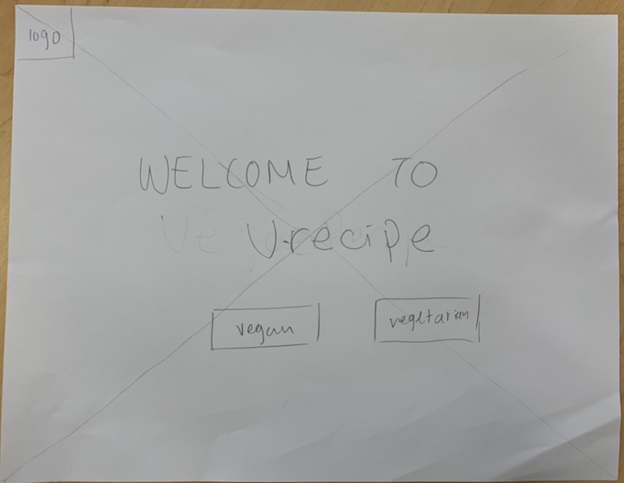 logo
WELCOME TO
V-recipe
vegan
vegetarian